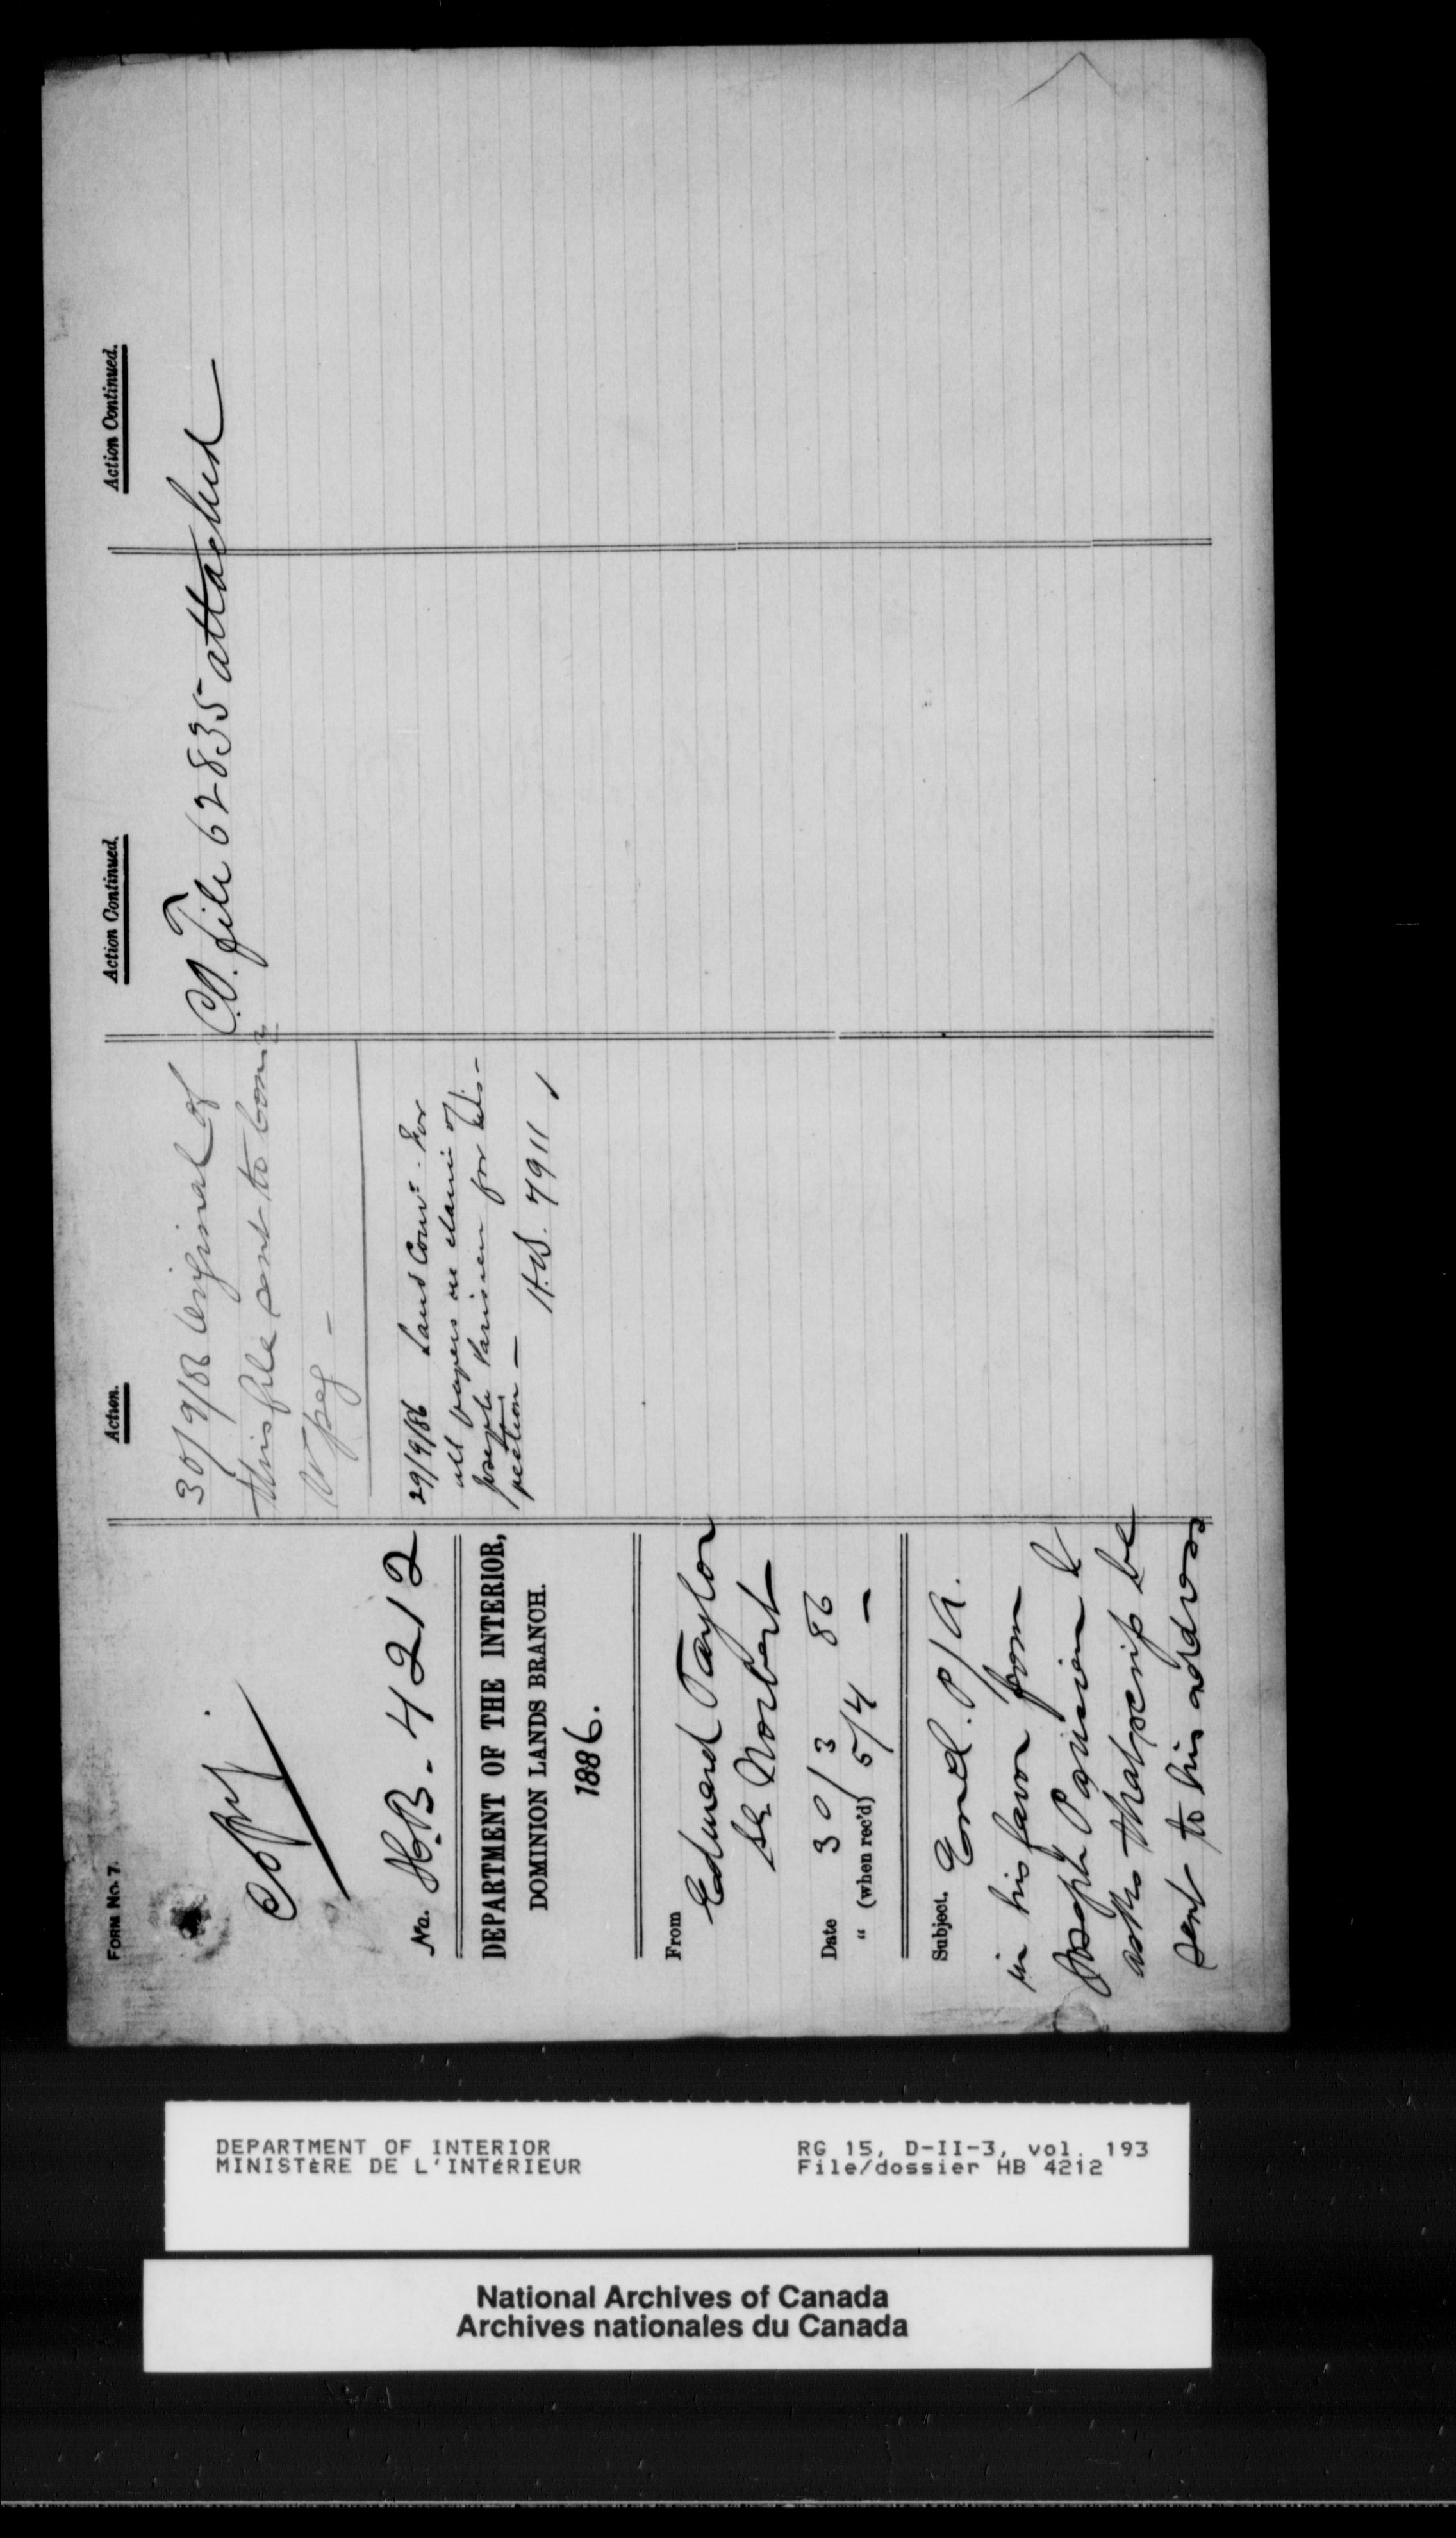 FORM No. 7.
Copy
No. H.B. - 4212
DEPARTMENT OF THE INTERIOR,
DOMINION LANDS BRANCH.
1886.
From
Edward Taylor
St. Norbert
Date 30/3 86
" (when rec'd) 5/4 —
Subject. Encl. P/A.
in his favor from
Joseph Parisien &
asks that scrip be
sent to his address
Action.
30/9/86 Original of
this file sent to Comr
Wpeg —
29/9/86 Land Comr. For
all papers in claim of
Joseph Parisien for
H.B. 7911
Action Continued.
C.O. file 62835 attached
Action Continued.
DEPARTMENT OF INTERIOR
MINISTÈRE DE L'INTÉRIEUR
RG 15, D-II-3, vol. 193
File/dossier HB 4212
National Archives of Canada
Archives nationales du Canada